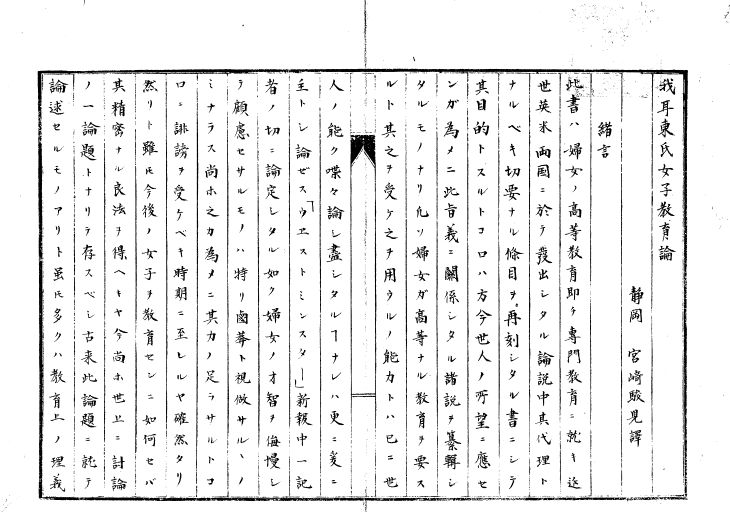 我耳東氏女子教育論
静岡　宮崎駿見譯
緒言
此書ハ婦女ノ高等教育即チ專門教育ニ就キ近
世英米両国ニ於テ發出シタル論説中其代理ト
ナルベキ切要ナル條目ヲ再刻シタル書ニシテ
其目的トスルトコロハ方今世人ノ所望ニ應セ
ンガ為メニ此旨義ニ關係シタル諸説ヲ纂輯シ
タルモノナリ凡ソ婦女ガ高等ナル教育ヲ要ス
ルト其之ヲ受ケ之ヲ用ウルノ能力トハ已ニ世
人ノ能ク喋々論シ盡シタルヿナレハ更ニ爰ニ
主トシ論ゼス「ウエストミンスター」新報中一記
者ノ切ニ論定シタル如ク婦女ノ才智ヲ侮慢シ
テ顧慮セサルモノハ特リ鹵莽ト視做サルヽノ
ミナラス尚ホ之カ為メニ其力ノ足ラサルトコ
ロニ誹謗ヲ受ケベキ時期ニ至レルヤ確然タリ
然リト雖𪜈今後ノ女子ヲ教育センニ如何セバ
其精密ナル良法ヲ得ヘキヤ今尚ホ世上ニ討論
ノ一論題トナリテ存スベシ古来此論題ニ就テ
論述セルモノアリト虽𪜈多クハ教育上ノ理義